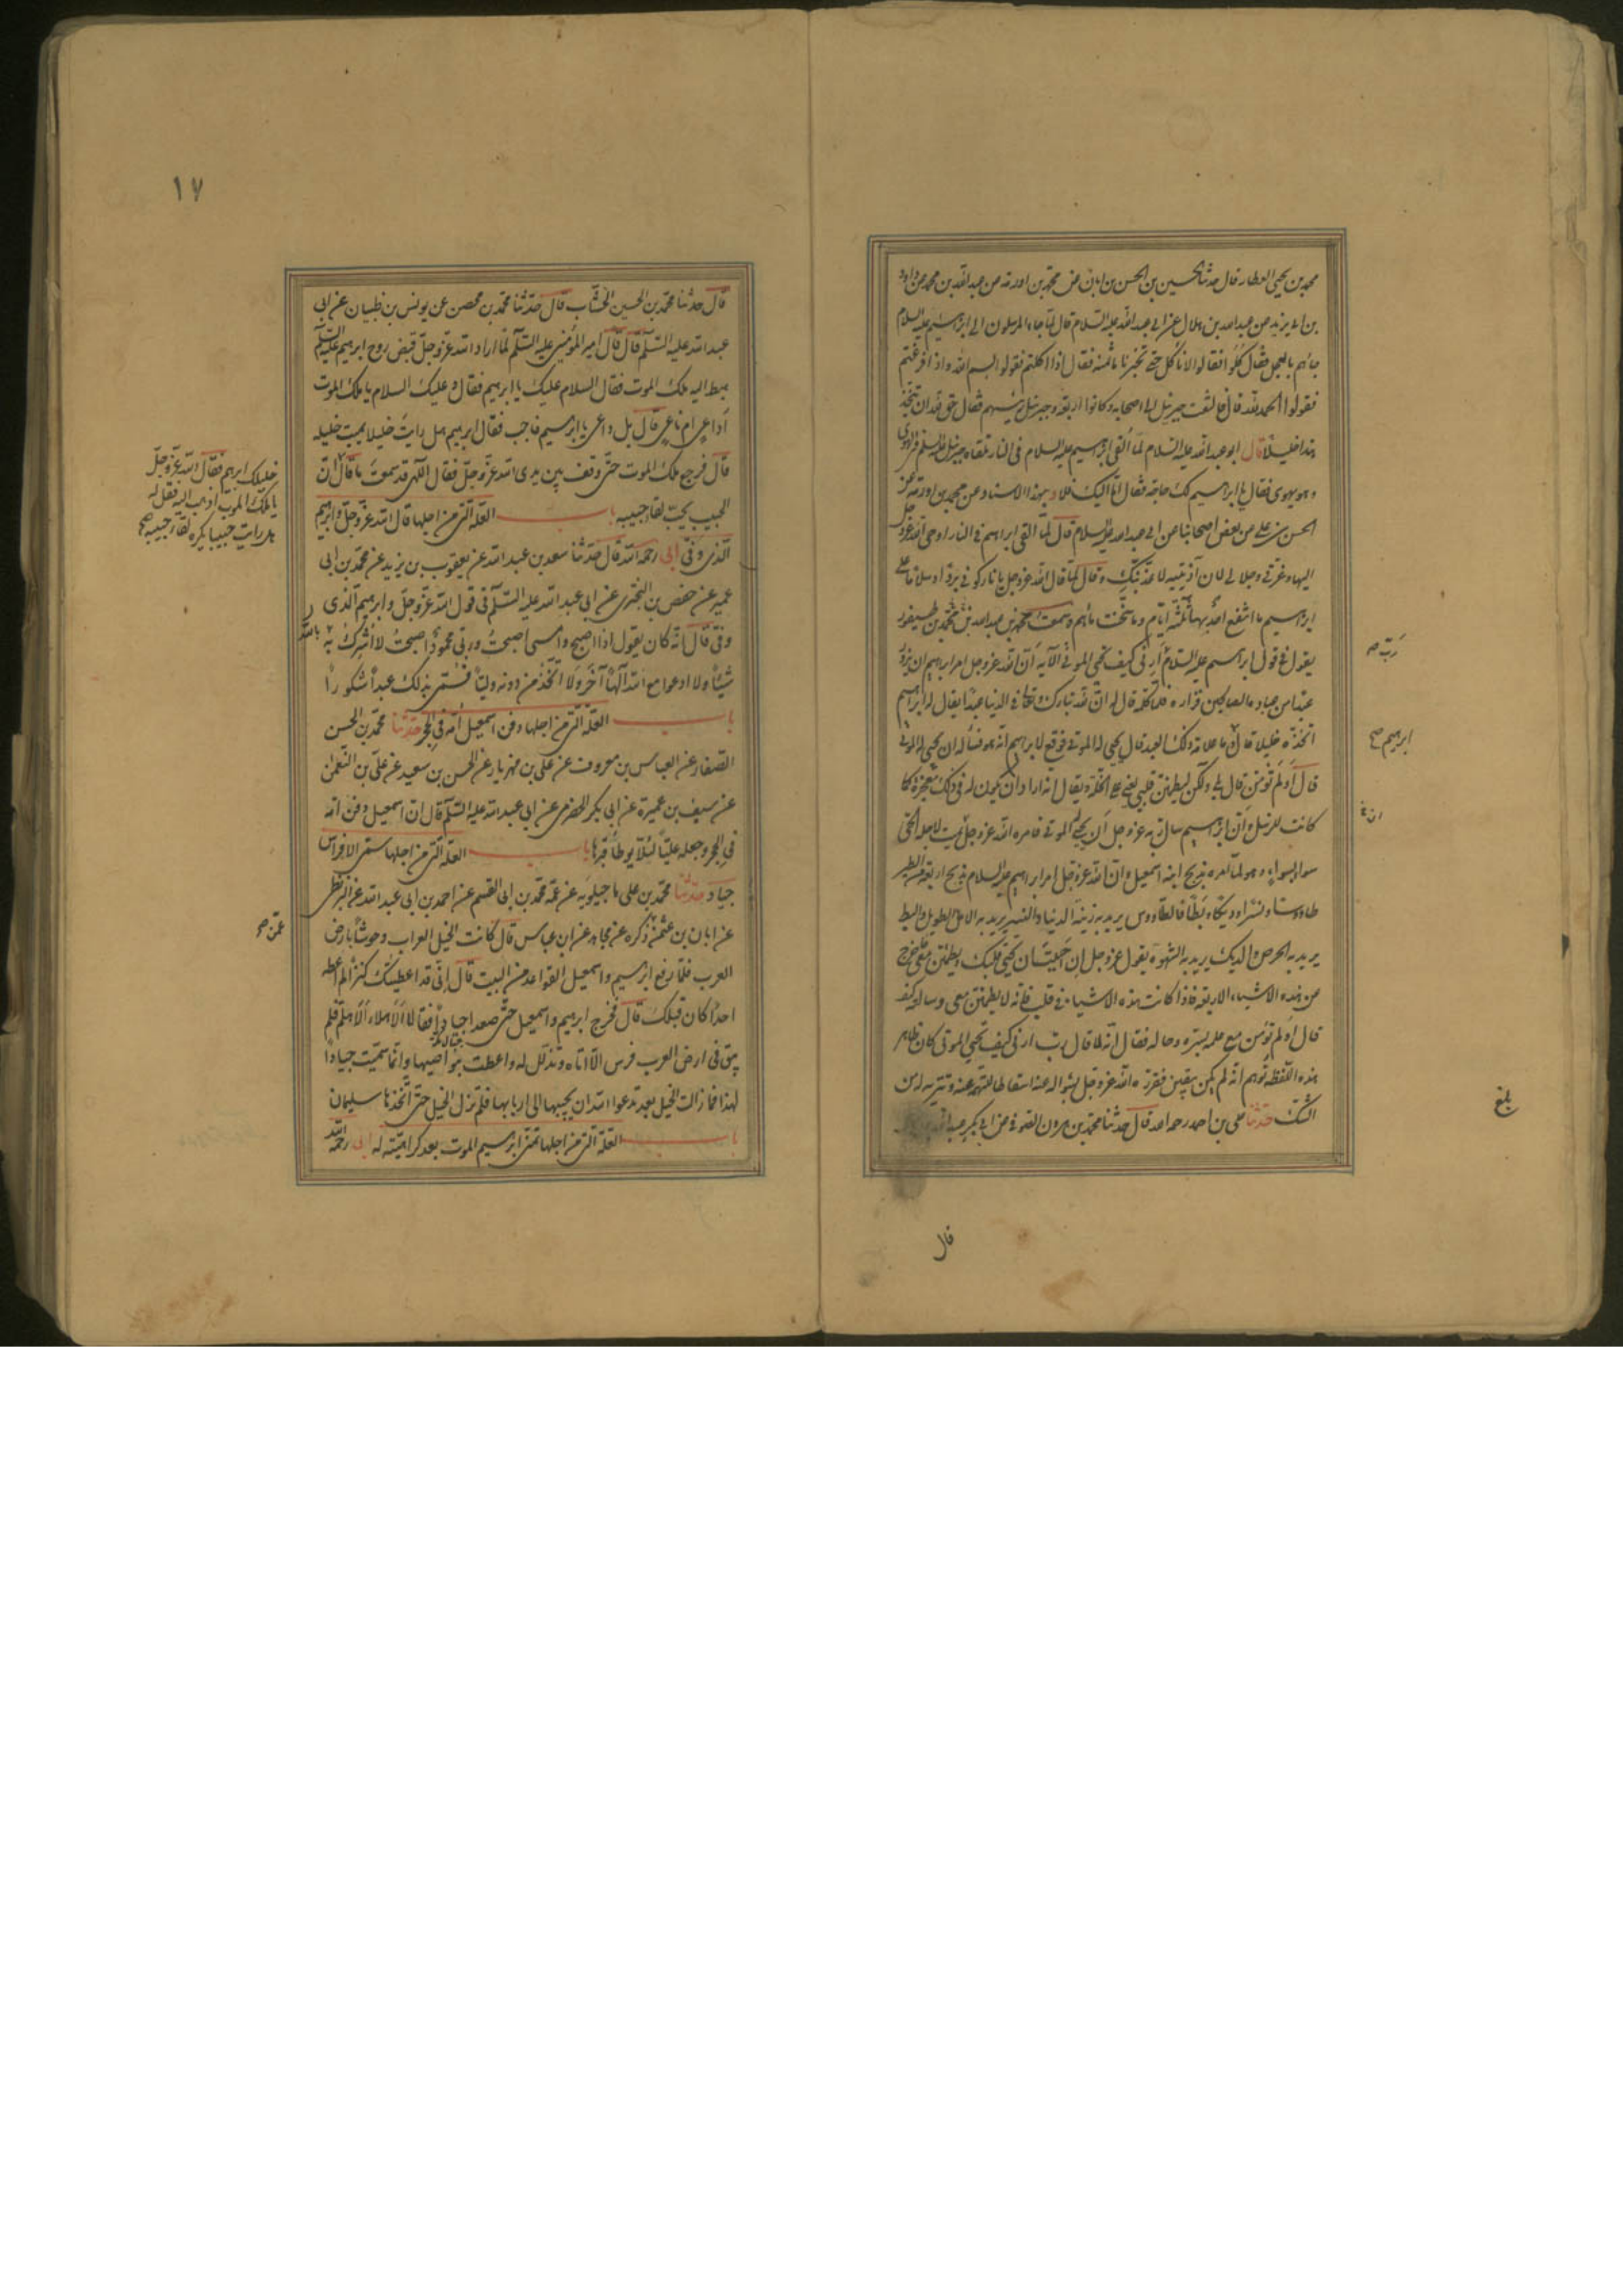 محمد بن يحيى العطار قال حدثنا الحسين بن الحسن بن ابان عن محمد بن اورمه عن عبد الله بن محمد عن داود
بن ابى يزيد عن عبد الله بن هلال عن ابى عبد الله عليه السلام قال لما جاء المرسلون الى ابراهيم عليه السلام
جاءهم بالعجل فقال كلوا فقالوا لا ناكل حتى تخبرنا ما ثمنه فقال اذا اكلتم فقولوا بسم الله واذا فرغتم
فقولوا الحمد لله قال فالتفت جبرئيل الى اصحابه وكانوا اربعة وجبرئيل رئيسهم فقال حق لله ان يتخذ
هذا خليلا قال ابو عبد الله عليه السلام لما القى ابراهيم عليه السلام فى النار تلقاه جبرئيل عليه السلم فى الهوى
وهو يهوى فقال يا ابراهيم لك حاجة فقال اما اليك فلا وبهذا الاسناد عن محمد بن اورمة عن
الحسن بن على عن بعض اصحابنا عن ابى عبد الله عليه السلام قال لما القى ابراهيم فى النار اوحى الله عز وجل
اليها وعزتى وجلالى لان آذيتيه لاعذبنك وقال لما قال الله عز وجل يا نار كونى بردا وسلاما على
ابراهيم ما انتفع احد بها ثلثة ايام وما سخنت ماءهم وسمعت محمد بن عبد الله بن محمد بن طيفور
يقول فى قول ابراهيم عليه السلام ارنى كيف تحيى الموتى الآية ان الله عز وجل امر ابراهيم ان يزور
عبدا من عباده الصالحين فزاره فلما كلمه قال له ان لله تبارك وتعالى فى الدنيا عبدا يقال له ابراهيم
اتخذه خليلا قال وما علامة ذلك العبد قال يحيى له الموتى فوقع لابراهيم انه هو فساله ان يحيى له الموتى
قال اولم تؤمن قال بلى ولكن ليطمئن قلبى يعنى على الخلة ويقال انه اراد ان يكون له فى ذلك معجزة كما
كانت للرسل وان ابراهيم سال ربه عز وجل ان يحيى له الموتى فامره الله عز وجل ان يميت لاجله الحى
سواء بسواء وهو لما امره بذبح ابنه اسمعيل وان الله عز وجل امر ابراهيم عليه السلام بذبح اربعة من الطير
طاووسا ونسرا وديكا وبطا فالطاووس يريد به زينة الدنيا والنسر يريد به الامل الطويل والبط
يريد به الحرص والديك يريد به الشهوة يقول عز وجل ان احببت ان تحيى قلبك ويطمئن معى فاخرج
من هذه الاشياء الاربعة فاذا كانت هذه الاشياء فى قلب فانه لا يطمئن معى وسالته كيف
قال اولم تؤمن مع علمه بسره وحاله فقال انه لما قال رب ارنى كيف تحيى الموتى كان ظاهر
هذه اللفظة توهم انه لم يكن بيقين فقرره الله عز وجل بسؤاله عنه اسقاطا للتهمة عنه وتنزيها له من
الشك حدثنا على بن احمد رحمه الله قال حدثنا محمد بن هرون الصوفى عن ابى بكر عبد الله
رب صح
ابرهيم صح
ان
بلغ
قال
١٧
قال حدثنا محمد بن الحسين الخشاب قال حدثنا محمد بن محصن عن يونس بن ظبيان عن ابى
عبد الله عليه السلم قال قال امير المؤمنين عليه السلم لما اراد الله عز وجل قبض روح ابرهيم عليه السلم
هبط اليه ملك الموت فقال السلام عليك يا ابرهيم فقال وعليك السلام يا ملك الموت
اداع ام ناعى قال بل داعى يا ابراهيم فاجب فقال ابرهيم هل رايت خليلا يميت خليله
قال فرجع ملك الموت حتى وقف بين يدى الله عز وجل فقال الهى قد سمعت ما قال ان
الحبيب يحب لقاء حبيبه باب العلة التى من اجلها قال الله عز وجل وابرهيم
الذى وفى ابى رحمه الله قال حدثنا سعد بن عبد الله عن يعقوب بن يزيد عن محمد بن ابى
عمير عن حفص بن البخترى عن ابى عبد الله عليه السلم فى قول الله عز وجل وابرهيم الذى
وفى قال انه كان يقول اذا اصبح وامسى اصبحت وربى محمود اصبحت لا اشرك به بالله
شيئا ولا ادعوا مع الله آلها آخر ولا اتخذ من دونه وليا فسمى بذلك عبدا شكورا
باب العلة التى من اجلها دفن اسمعيل امه فى الحجر حدثنا محمد بن الحسن
الصفار عن العباس بن معروف عن على بن مهزيار عن الحسن بن سعيد عن على بن النعمان
عن سيف بن عميرة عن ابى بكر الحضرمى عن ابى عبد الله عليه السلم قال ان اسمعيل دفن امه
فى الحجر وجعله عليا لئلا يوطا قبرها باب العلة التى من اجلها سمى الافراس
جياد حدثنا محمد بن على ماجيلويه عن عمه محمد بن ابى القسم عن احمد بن ابى عبد الله عن البزنطى
عن ابان بن عثمن ذكره عن مجاهد عن ابن عباس قال كانت الخيل العراب وحوشا بارض
العرب فلما رفع ابرهيم واسمعيل القواعد من البيت قال انى قد اعطيتك كنزا لم اعطه
احدا كان قبلك قال فخرج ابرهيم واسمعيل حتى صعدا جيادا فقالا الا هلا الا هلم فلم
يبق فى ارض العرب فرس الا اتاه وتذلل له واعطت بنواصيها وانما سميت جيادا
لهذا فما زالت الخيل بعد تدعوا الله ان يحببها الى اربابها فلم تزل الخيل حتى اتخذها سليمان
باب العلة التى من اجلها تمنى ابراهيم الموت بعد كراهيته له ابى رحمه الله
خليلك ابرهيم فقال الله عز وجل
يا ملك الموت اذهب اليه فقل له
هل رايت حبيبا يكره لقاء حبيبه صح
عمن صح